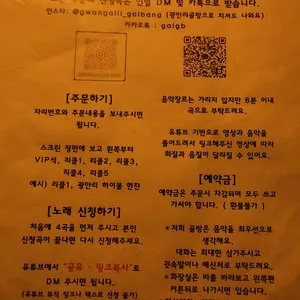 인스타: @gwangalli_golbang (광안리골방으로 쳐서도 나와요)
카카오톡 : galgb
[주문하기]
자리번호와 주문내용을 보내주시면
됩니다.
스크린 정면에 보고 왼쪽부터
VIP석, 리클1, 리클2, 리클3,
리클4, 리클5
예시) 리클1, 광안리 하이볼 한잔
[노래 신청하기]
처음에 4곡을 먼저 주시고 본인
신청곡이 끝나면 다시 신청해주세요.
유튜브에서 "공유 - 링크복사"로
DM 주시면 됩니다.
(유튜브 뮤직 링크나 텍스트 신청 불가)
음악장르는 가리지 않지만 6분 이내
곡으로 부탁드려요.
유튜브 기반으로 영상과 음악을
틀어드려서 링크해주신 영상에 따라
화질과 음질이 달라질 수 있어요.
[예약금]
예약금은 주문시 차감되며 모두 쓰고
가셔야 합니다. ( 환불불가 )
* 저희 골방은 음악을 최우선으로
생각해요.
대화는 최대한 삼가주시고
귓속말이나 메신저로 부탁드려요.
* 화장실은 바를 바라보고 왼쪽편
커튼뒤로 나가시면 있습니다.